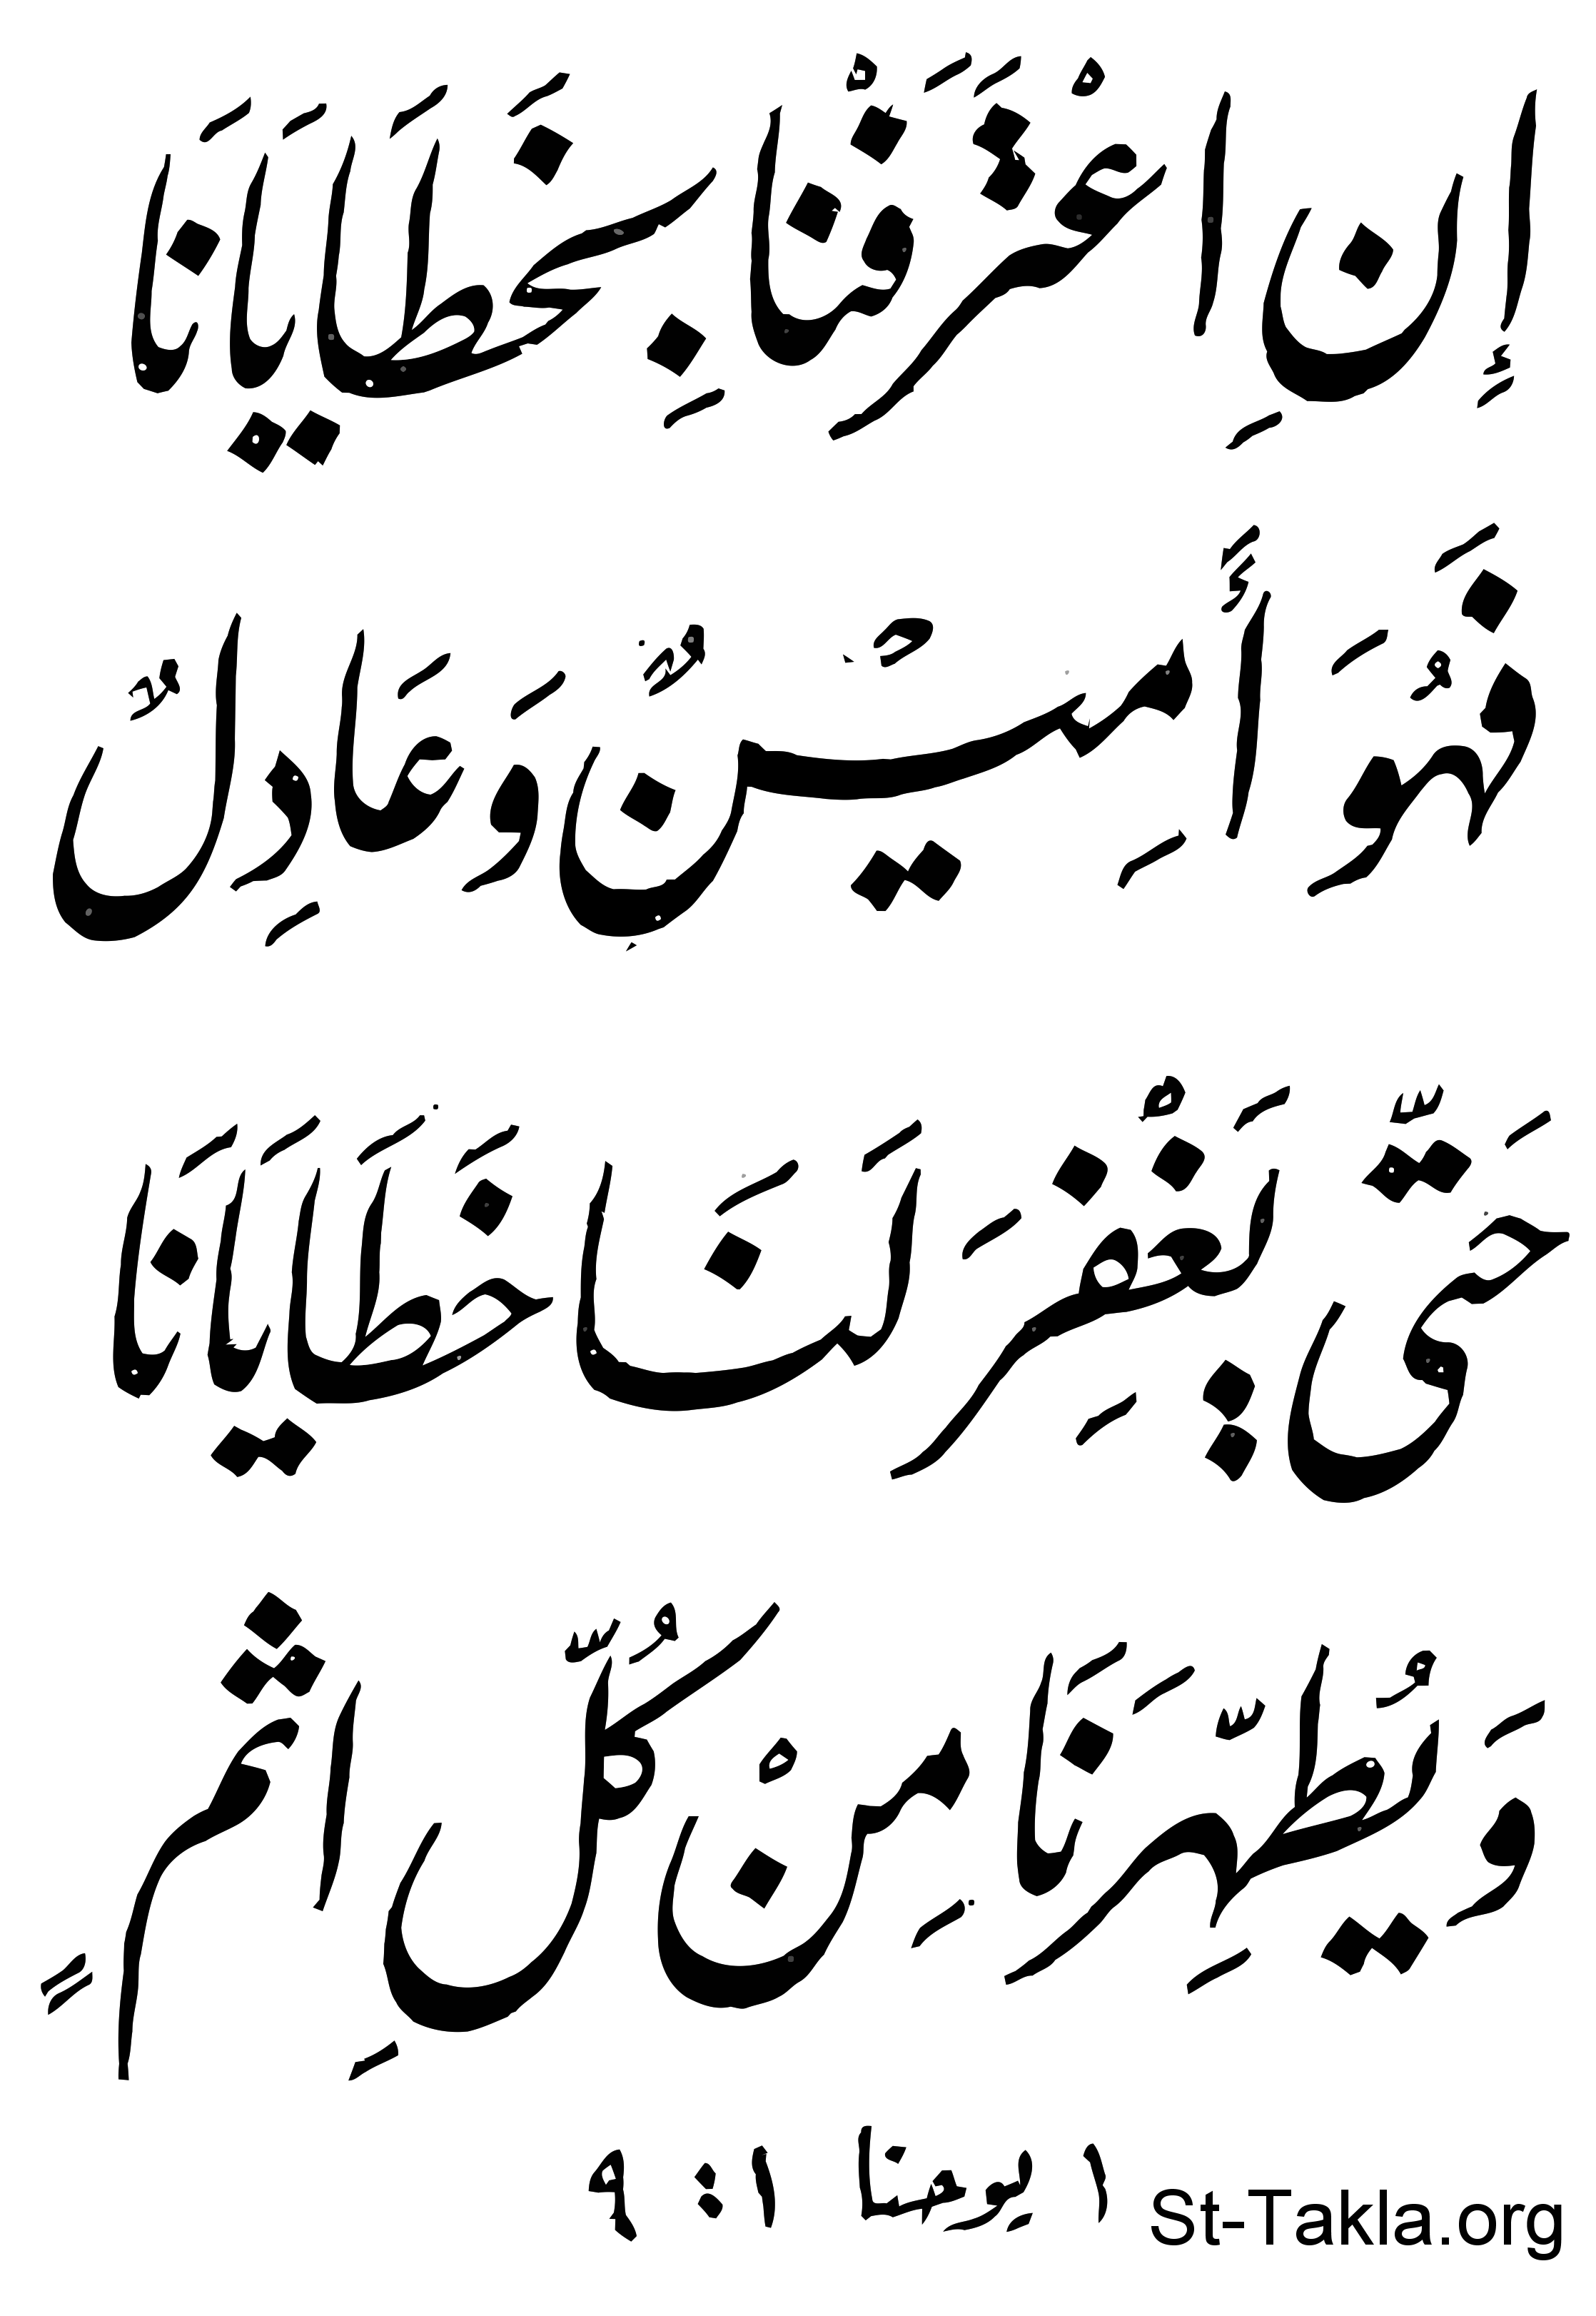 إِنِ اعْتَرَفْنَا بِخَطَايَانَا
فَهُوَ أَمِينٌ وَعَادِلٌ
حَتَّى يَغْفِرَ لَنَا خَطَايَانَا
وَيُطَهِّرَنَا مِنْ كُلِّ اثْمٍ
١ يوحنا ١ : ٩
St-Takla.org